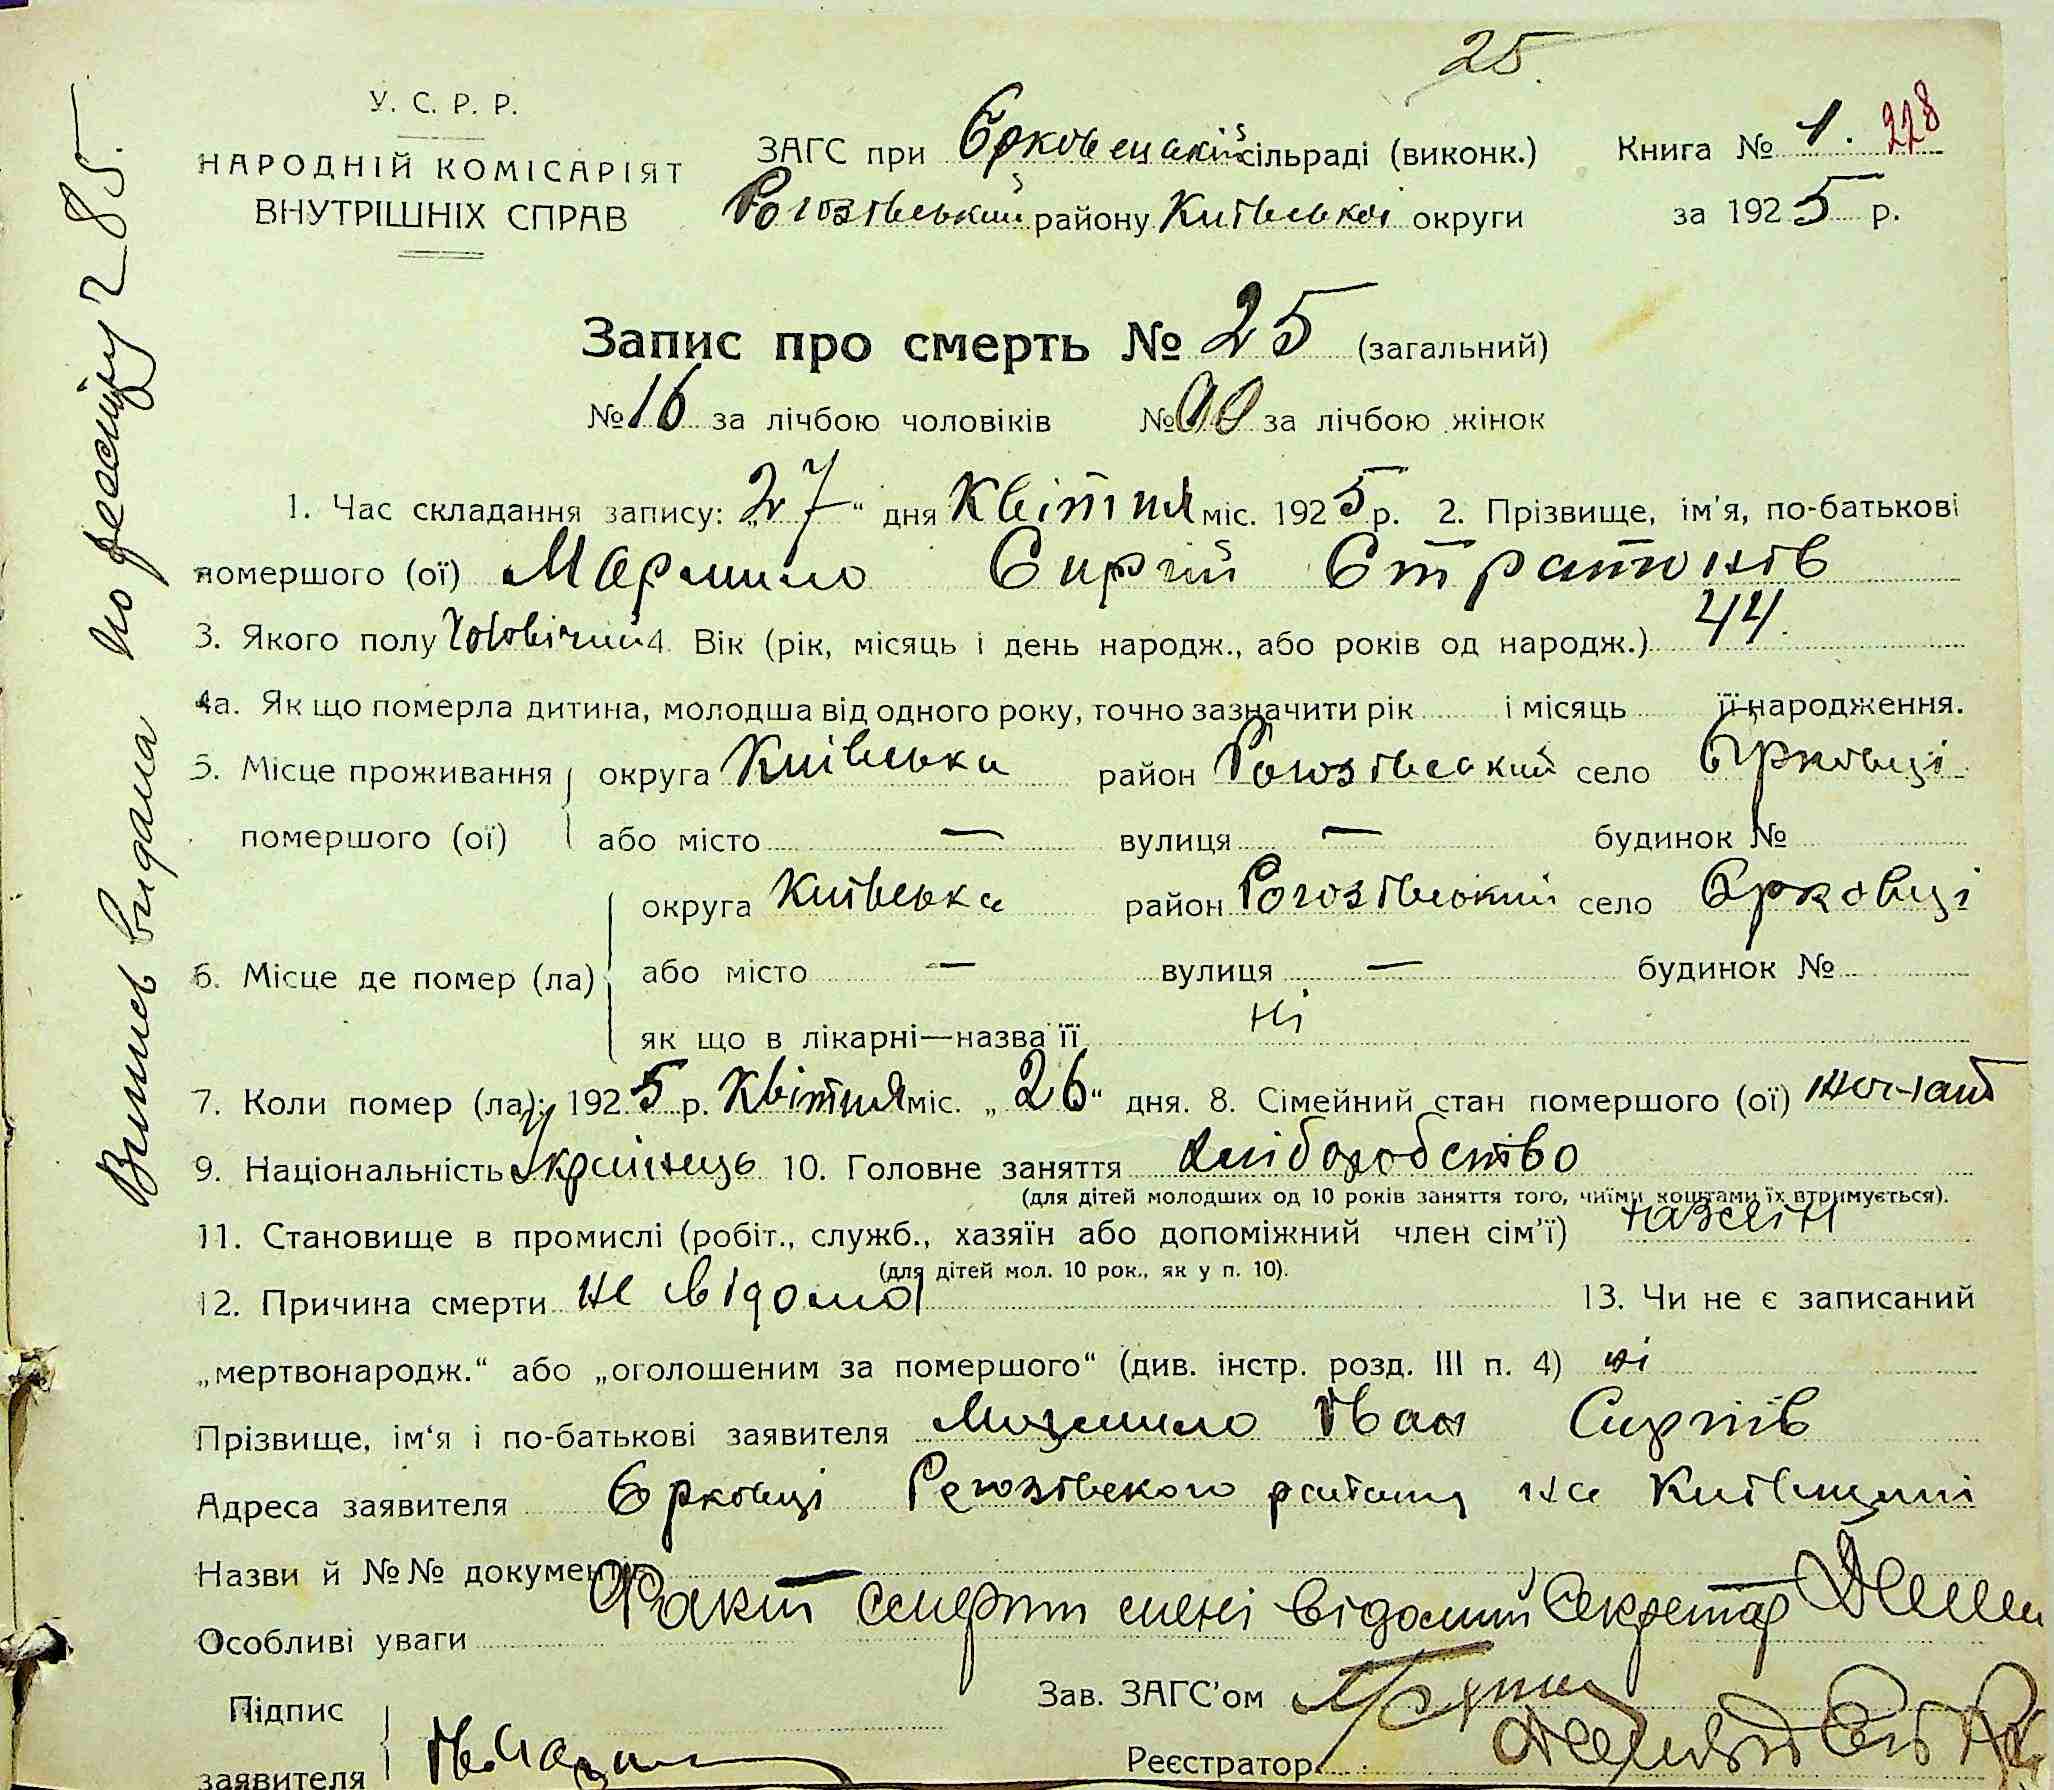 25.
У. С. Р. Р.
НАРОДНІЙ КОМІСАРІЯТ
ВНУТРІШНІХ СПРАВ
ЗАГС при Єрковецькій сільраді (виконк.)
Рогозівський району Київської округи
Книга № 1. 228
за 1925 р.
Запис про смерть № 25 (загальний)
№ 16 за лічбою чоловіків № 00 за лічбою жінок
1. Час складання запису: „27“ дня Квітня міс. 1925 р. 2. Прізвище, ім'я, по-батькові
помершого (ої) Сиргій Стратонів
3. Якого полу Чоловічий 4. Вік (рік, місяць і день народж., або років од народж.) 44.
4а. Як що померла дитина, молодша від одного року, точно зазначити рік і місяць її народження.
5. Місце проживання помершого (ої) округа Київська район Рогозівський село Єрковці
або місто — вулиця — будинок №
6. Місце де помер (ла) округа Київська район Рогозівський село Єрковці
або місто — вулиця — будинок №
як що в лікарні—назва її ні
7. Коли помер (ла): 1925 р. Квітня міс. „26“ дня. 8. Сімейний стан помершого (ої)
9. Національність Українець 10. Головне заняття хліборобство
(для дітей молодших од 10 років заняття того, чиїми коштами їх втримується).
11. Становище в промислі (робіт., служб., хазяїн або допоміжний член сім'ї) хазяїн
(для дітей мол. 10 рок., як у п. 10).
12. Причина смерти не відомо 13. Чи не є записаний
„мертвонародж.“ або „оголошеним за помершого“ (див. інстр. розд. III п. 4) ні
Прізвище, ім'я і по-батькові заявителя Іван Сиргіїв
Адреса заявителя Єрковці Рогозівського району на Київщині
Назви й №№ документів
Особливі уваги Факт смерти мені відомий Секретар
Підпис
заявителя
Зав. ЗАГС'ом
Реєстратор
Випись видана по реєстру 285.